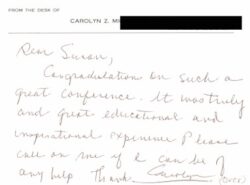 FROM THE DESK OF
CAROLYN Z. MI
Dear Susan,
Congratulations on such a
great conference. It was truly
and great educational and
inspirational experience Please
call on me if I can be of
any help Thank Carolyn
(OVER)